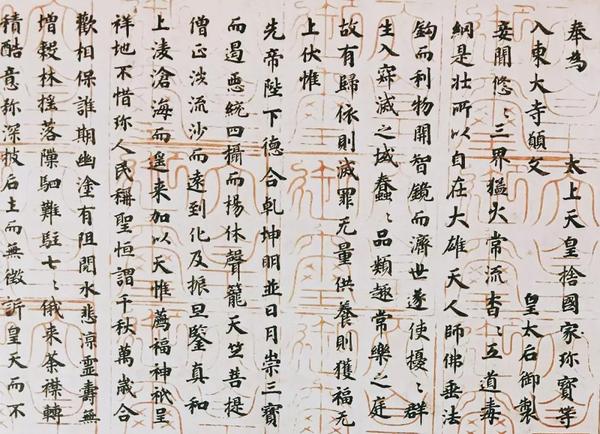 奉為　太上天皇捨國家珎寶等
入東大寺願文　皇太后御製
妾聞悠〻三界猛火常流杳〻五道毒
網是壯所以自在大雄天人師佛垂法
鈎而利物開智鏡而濟世遂使擾〻群
生入寂滅之域蠢〻品類趣常樂之庭
故有歸依則滅罪无量供養則獲福无
上伏惟
先帝陛下德合乾坤明並日月崇三寶
而遏惡統四攝而揚休聲籠天竺菩提
僧正涉流沙而遠到化及振旦鑒真和
上凌滄海而遙来加以天惟薦福神祇呈
祥地不惜珎人民稱聖恒謂千秋萬歲合
歡相保誰期幽塗有阻閱水悲涼靈壽無
增穀林搖落隙駟難駐七〻俄来荼襟轉
積酷意弥深披后土而無徵訴皇天而不